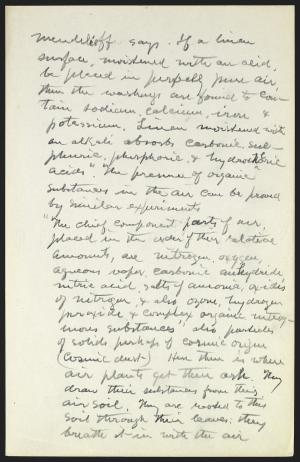 Mendeléeff says. If a linen
surface, moistened with an acid,
be placed in perfectly pure air,
then the washings are found to con-
tain sodium, calcium, iron &
potassium. Linen moistened with
an alkali absorbs carbonic, sul-
phuric, phosphoric & hydrochloric
acids." "The presence of organic
substances in the air can be proved
by similar experiments
"The chief component parts of air,
placed in the order of their relative
amounts, are nitrogen, oxygen,
aqueous vapor, carbonic anhydride,
nitric acid, salts of ammonia, oxides
of nitrogen, & also ozone, hydrogen
peroxide & complex organic nitrog-
enous substances" also particles
of solids perhaps of cosmic origin
(cosmic dust) Here then is where
air plants get their ash. They
draw their substances from this
air soil. They are rooted to this
soil through their leaves. they
breath it in with the air